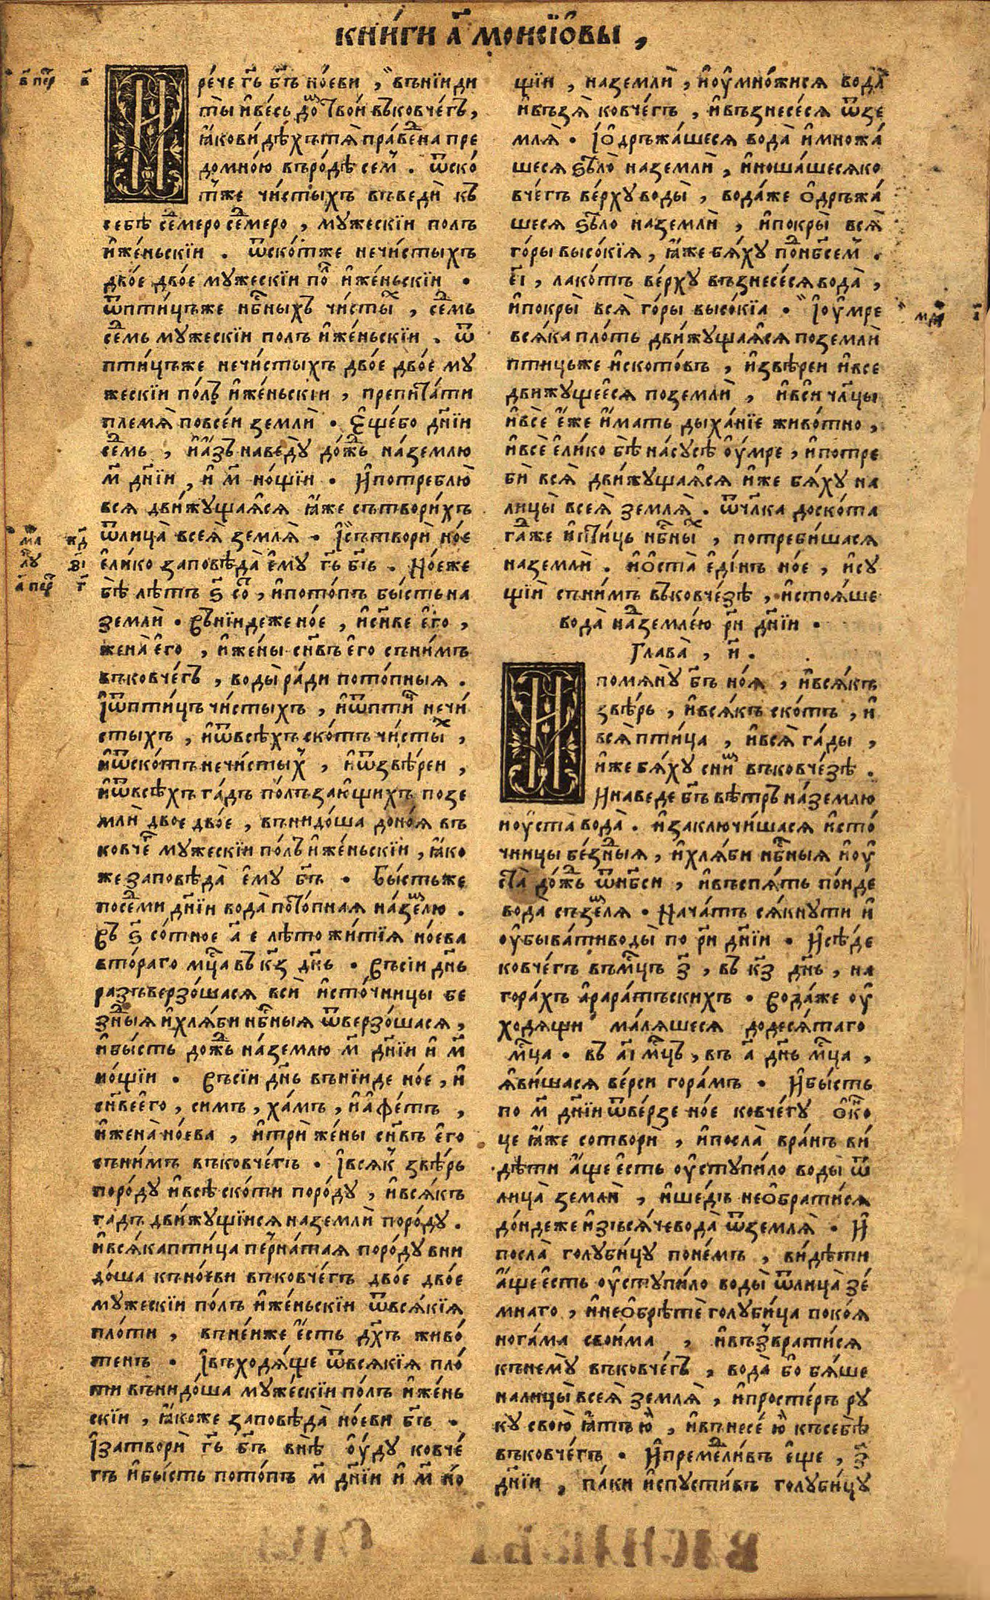 КНИ́ГИ А҃ МОИСІ́ОВЫ ,
в҃ пе́р в҃
И рече гь҃ бг҃ъ но́еви , вънїиди
ты̀ и҆ве́сь до́ твои въковче́гъ ,
ꙗ҆кови дѣхъ тѧ̀ пра́ведна пре
домно́ю въро́дѣ се́мъ . ѿско́
тже чи́стыхъ въведи къ
себѣ̀ се́меро се́меро , му́жескїи полъ
и҆же́ньскїи . ѿско́тже нечи́стыхъ
дво́е дво́е му́жескїи по и҆же́ньскїи .
ѿпти́цъже нб҃ныхъ чи́сты , се́мь
се́мь му́жескїи полъ и҆же́ньскїи . ѿ
пти́цъже нечи́стыхъ дво́е дво́е му́
жескїи по́лъ и҆же́ньскїи , препита́ти
пле́мѧ повсе́и землѝ . є҆ще́бо дн҃їи
се́мь , и҆а҆́зъ наведу̀ до́жь на́землю
м҃ дн҃їи , и҆ м҃ но́щїи . И҆потреблю̀
всѧ дви́жущаѧсѧ ꙗ҆́же сътвори́хъ
ѿлица̀ всеѧ̀ землѧ̀ . І҆сътворѝ но́е
є҆ли́ко заповѣ́да є҆му̀ гь҃ бг҃ъ . Но́еже
бѣ̀ лѣ́тъ ѕ҃ со́ , и҆пото́пъ бы́сть на
землѝ . Въни́идеже но́е , и҆сн҃ве є҆го̀ ,
жена̀ є҆го̀ , и҆же́ны сн҃въ є҆го̀ сънимъ
въковче́гъ , воды̀ ра́ди пото́пныѧ .
І҆ѿпти́цъ чи́стыхъ , и҆ѿпти́ нечи́
стыхъ , и҆ѿвсѣ́хъ ско́тъ чи́сты ,
и҆ѿско́тъ нечи́стых , и҆ѿзвѣре́и ,
и҆ѿвсѣ́хъ га́дъ по́лъзающихъ позе
млѝ дво́е дво́е , вънидо́ша доно́ѧ въ
ковче́ му́жескїи по́лъ и҆же́ньскїи , ꙗ҆ко
же заповѣ́да є҆му̀ бг҃ъ . Бы́стьже
посеми дн҃їи вода̀ пото́пнаѧ на́землю .
Въ ѕ҃ со́тное а҃ е лѣ́то житїѧ̀ но́ева
втора́го мц҃а въ к҃з дн҃ь . Въсїи дн҃ь
разъверзо́шасѧ всѝ и҆сто́чницы бе́
здныѧ и҆хлѧ́би нб҃ныѧ ѿверзо́шасѧ ,
и҆бы́сть до́жь на́землю м҃ дн҃їи и҆ м҃
но́щїи . Въсїи дн҃ь вънїиде но́е , и҆
сн҃вее҆го , симъ , ха́мъ , и҆а҆фе́тъ ,
и҆жена̀ но́ева , и҆трѝ же́ны сн҃въ є҆го̀
сънимъ въковче́гъ . І҆всѧ́к звѣ́рь
поро́ду и҆всѣ̀ ско́ти поро́ду , и҆всѧ́къ
га́дъ дви́жущїисѧ на землѝ поро́ду .
и҆всѧ́каптица перна́таѧ поро́ду вни
до́ша къно́еви въковче́гъ дво́е дво́е
му́жескїи по́лъ и҆же́ньскїи ѿвсѧ́кїѧ
пло́ти , въне́иже є҆́сть дх҃ъ живо́
тенъ . І҆въходѧ́ще ѿвсѧ́кїѧ пло́
ти вънидо́ша му́жескїи по́лъ и҆же́нь
скїи , ꙗ҆́коже заповѣ́да но́еви бг҃ъ .
І҆затворѝ гь҃ бг҃ъ внѣ̀ ѹ҆́ду ковче́
гъ и҆бы́сть пото́пъ м҃ дн҃їи и҆ м҃ но́
щїи , наземлѝ , и҆ѹ҆мно́жисѧ вода̀
и҆възѧ̀ ковче́гъ , и҆възнесе́сѧ ѿзе
млѧ̀ . І҆ѻ҆дръжа́шесѧ вода̀ и҆множа́
шесѧ ѕѣлѻ̀ наземлѝ , и҆ноша́шесѧко
вче́гъ ве́рху воды̀ , вода́же ѻ҆дръжа́
шесѧ ѕѣлѻ наземлѝ , и҆покры̀ всѧ̀
го́ры высо́кїѧ , ꙗ҆́же бѧ́ху поднб҃се́м .
є҃і , ла́котъ ве́рху възнесе́сѧ вода̀ ,
и҆покры̀ всѧ̀ го́ры высо́кїа . І҆ѹ҆́мре
всѧ́ка пло́ть дви́жущаѧсѧ поземлѝ
пти́цьже и҆ско́товъ , и҆звѣре́и и҆все
дви́жущеесѧ поземлѝ , и҆всѝ чл҃цы
и҆всѐ є҆́же и҆́мать дыха́нїе живо́тно ,
и҆всѐ є҆ли́ко бѣ̀ насу́сѣ ѹ҆́мре , и҆потре
бѝ всѧ̀ дви́жущаѧсѧ и҆́же бѧ́ху на
лицы̀ всеѧ̀ землѧ̀ . ѿчл҃ка доскота
га́же и҆пти́ць нб҃ны , потреби́шасѧ
наземлѝ . и҆ѻ҆ста̀ є҆ди́нъ но́е , и҆су́
щїи сънимъ въковче́зѣ , и҆стоѧ́ше
вода̀ на́дземлею рн҃ дн҃їи .
Глава̀ , и҃ .
И помѧну̀ бг҃ъ но́ѧ , и҆всѧ́къ
звѣ́рь , и҆всѧ́къ ско́тъ , и҆
всѧ̀ пти́ца , и҆всѧ̀ га́ды ,
и҆́же бѧ́ху сни́ въковче́зѣ .
И҆наведѐ бг҃ъ вѣ́тръ на́землю
и҆ѹ҆ста̀ вода̀ . и҆заключи́шасѧ и҆сто́
чницы бе́здныѧ , и҆хлѧ́би нб҃ныѧ и҆ѹ҆
ста̀ до́жь ѿнб҃си , и҆въспѧ́ть по́иде
вода̀ съземлѧ̀ . Нача́тъ сѧ́кнути и҆
ѹ҆быва́тиводы̀ по рн҃ дн҃їи . И҆сѣ́де
ковче́гъ вмц҃ъ з҃ , въ к҃з дн҃ь , на
гора́хъ а҆рара́тъскихъ . Вода́же ѹ҆
ходѧ́щи ма́лѧшесѧ додесѧ́таго
мц҃а . въ а҃і мц҃ъ , въ а҃ дн҃ь мц҃а ,
ꙗ҆ви́шасѧ ве́рси гора́мъ . И҆бы́сть
по м҃ дн҃їи ѿве́рзе но́е ковче́гу ѻ҆ко́
це ꙗ҆́же сотворѝ , и҆посла̀ вра́нъ ви́
дѣти а҆́ще є҆́сть ѹ҆ступи́ло воды̀ ѿ
лица̀ землѝ , и҆ше́дъ неѻ҆брати́сѧ
до́ндеже и҆зъсѧ́че вода̀ ѿземлѧ̀ . И҆
посла̀ голуби́цу поне́мъ , ви́дѣти
а҆́ще є҆́сть ѹ҆ступи́ло воды̀ ѿлица̀ зе́
мнаго , и҆неѻ҆брѣ́те голуби́ца поко́ѧ
нога́ма свои́ма , и҆възврати́сѧ
къне́му въковче́гъ , вода̀ бо бѧ́ше
налицы̀ всеѧ̀ землѧ̀ , и҆просте́ръ ру́
ку свою̀ ꙗ҆́тъ ю҆̀ , и҆внесе́ ю҆̀ късебѣ̀
въковче́гъ . И҆преме́дливъ є҆щѐ , з҃
дн҃їи , па́ки и҆спусти́въ голуби́цу